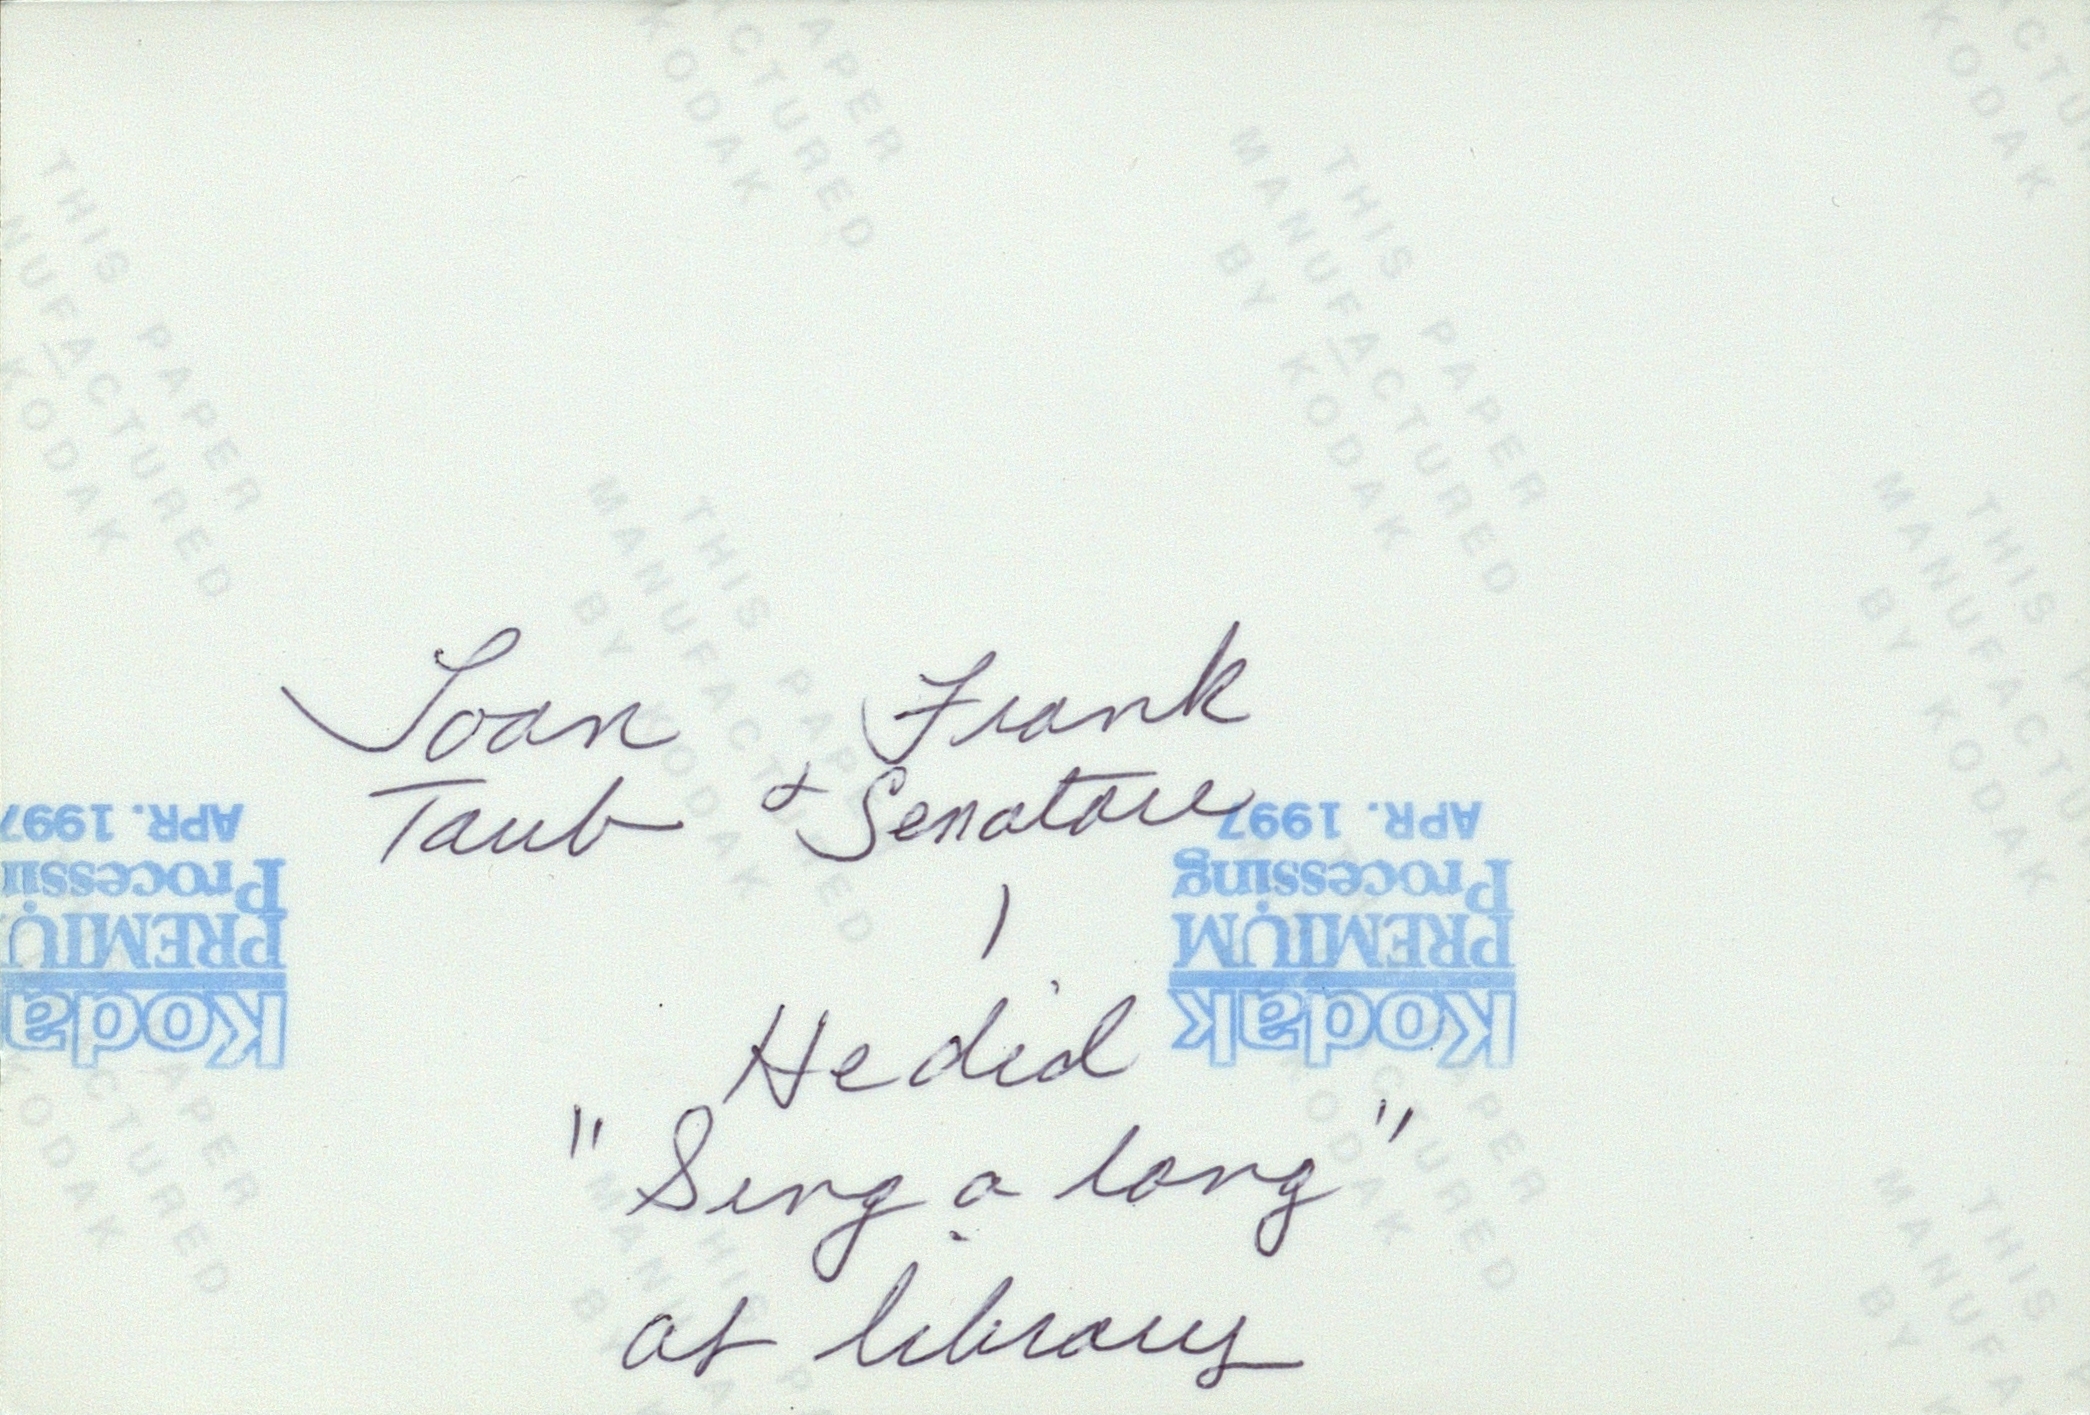 Joan Frank
Taub & Senatore
He did
"Sing a long"
at library
APR. 1997
Processing
PREMIUM
Kodak
APR. 1997
Processin
PREMIU
Koda
THIS PAPER
MANUFACTURED
BY KODAK